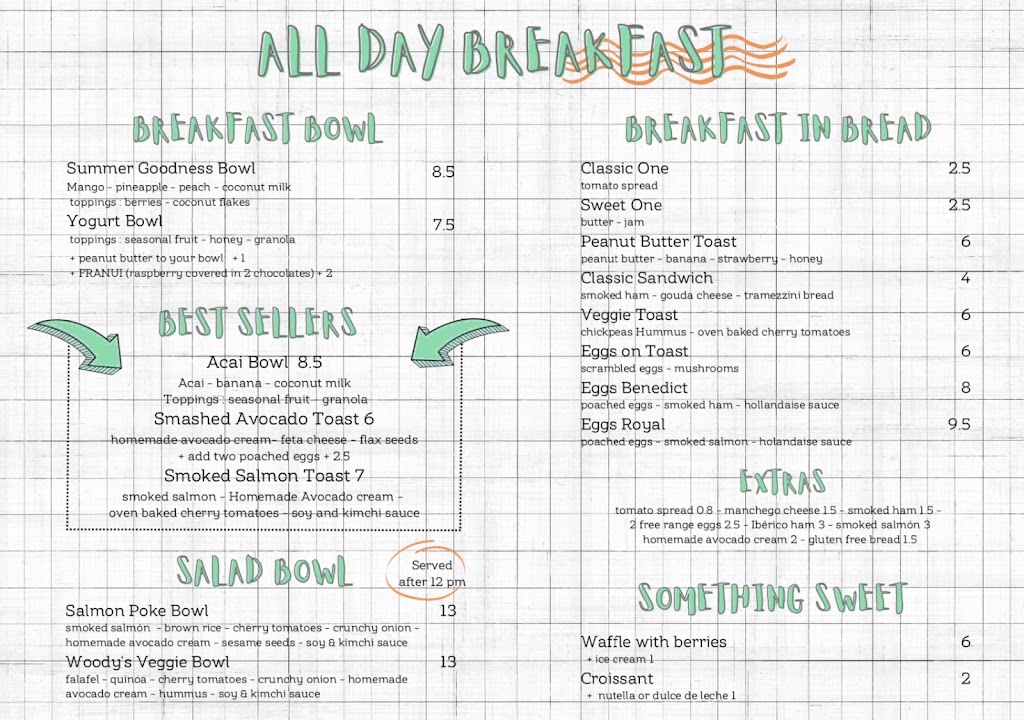 ALL DAY BREAKFAST
BREAKFAST BOWL
Summer Goodness Bowl 8.5
Mango - pineapple - peach - coconut milk
toppings : berries - coconut flakes
Yogurt Bowl 7.5
toppings : seasonal fruit - honey - granola
+ peanut butter to your bowl + 1
+ FRANUI (raspberry covered in 2 chocolates) + 2
BEST SELLERS
Acai Bowl 8.5
Acai - banana - coconut milk
Toppings : seasonal fruit - granola
Smashed Avocado Toast 6
homemade avocado cream- feta cheese - flax seeds
+ add two poached eggs + 2.5
Smoked Salmon Toast 7
smoked salmon - Homemade Avocado cream -
oven baked cherry tomatoes - soy and kimchi sauce
SALAD BOWL
Served
after 12 pm
Salmon Poke Bowl 13
smoked salmón - brown rice - cherry tomatoes - crunchy onion -
homemade avocado cream - sesame seeds - soy & kimchi sauce
Woody's Veggie Bowl 13
falafel - quinoa - cherry tomatoes - crunchy onion - homemade
avocado cream - hummus - soy & kimchi sauce
BREAKFAST IN BREAD
Classic One 2.5
tomato spread
Sweet One 2.5
butter - jam
Peanut Butter Toast 6
peanut butter - banana - strawberry - honey
Classic Sandwich 4
smoked ham - gouda cheese - tramezzini bread
Veggie Toast 6
chickpeas Hummus - oven baked cherry tomatoes
Eggs on Toast 6
scrambled eggs - mushrooms
Eggs Benedict 8
poached eggs - smoked ham - hollandaise sauce
Eggs Royal 9.5
poached eggs - smoked salmon - holandaise sauce
EXTRAS
tomato spread 0.8 - manchego cheese 1.5 - smoked ham 1.5 -
2 free range eggs 2.5 - Ibérico ham 3 - smoked salmón 3
homemade avocado cream 2 - gluten free bread 1.5
SOMETHING SWEET
Waffle with berries 6
+ ice cream 1
Croissant 2
+ nutella or dulce de leche 1